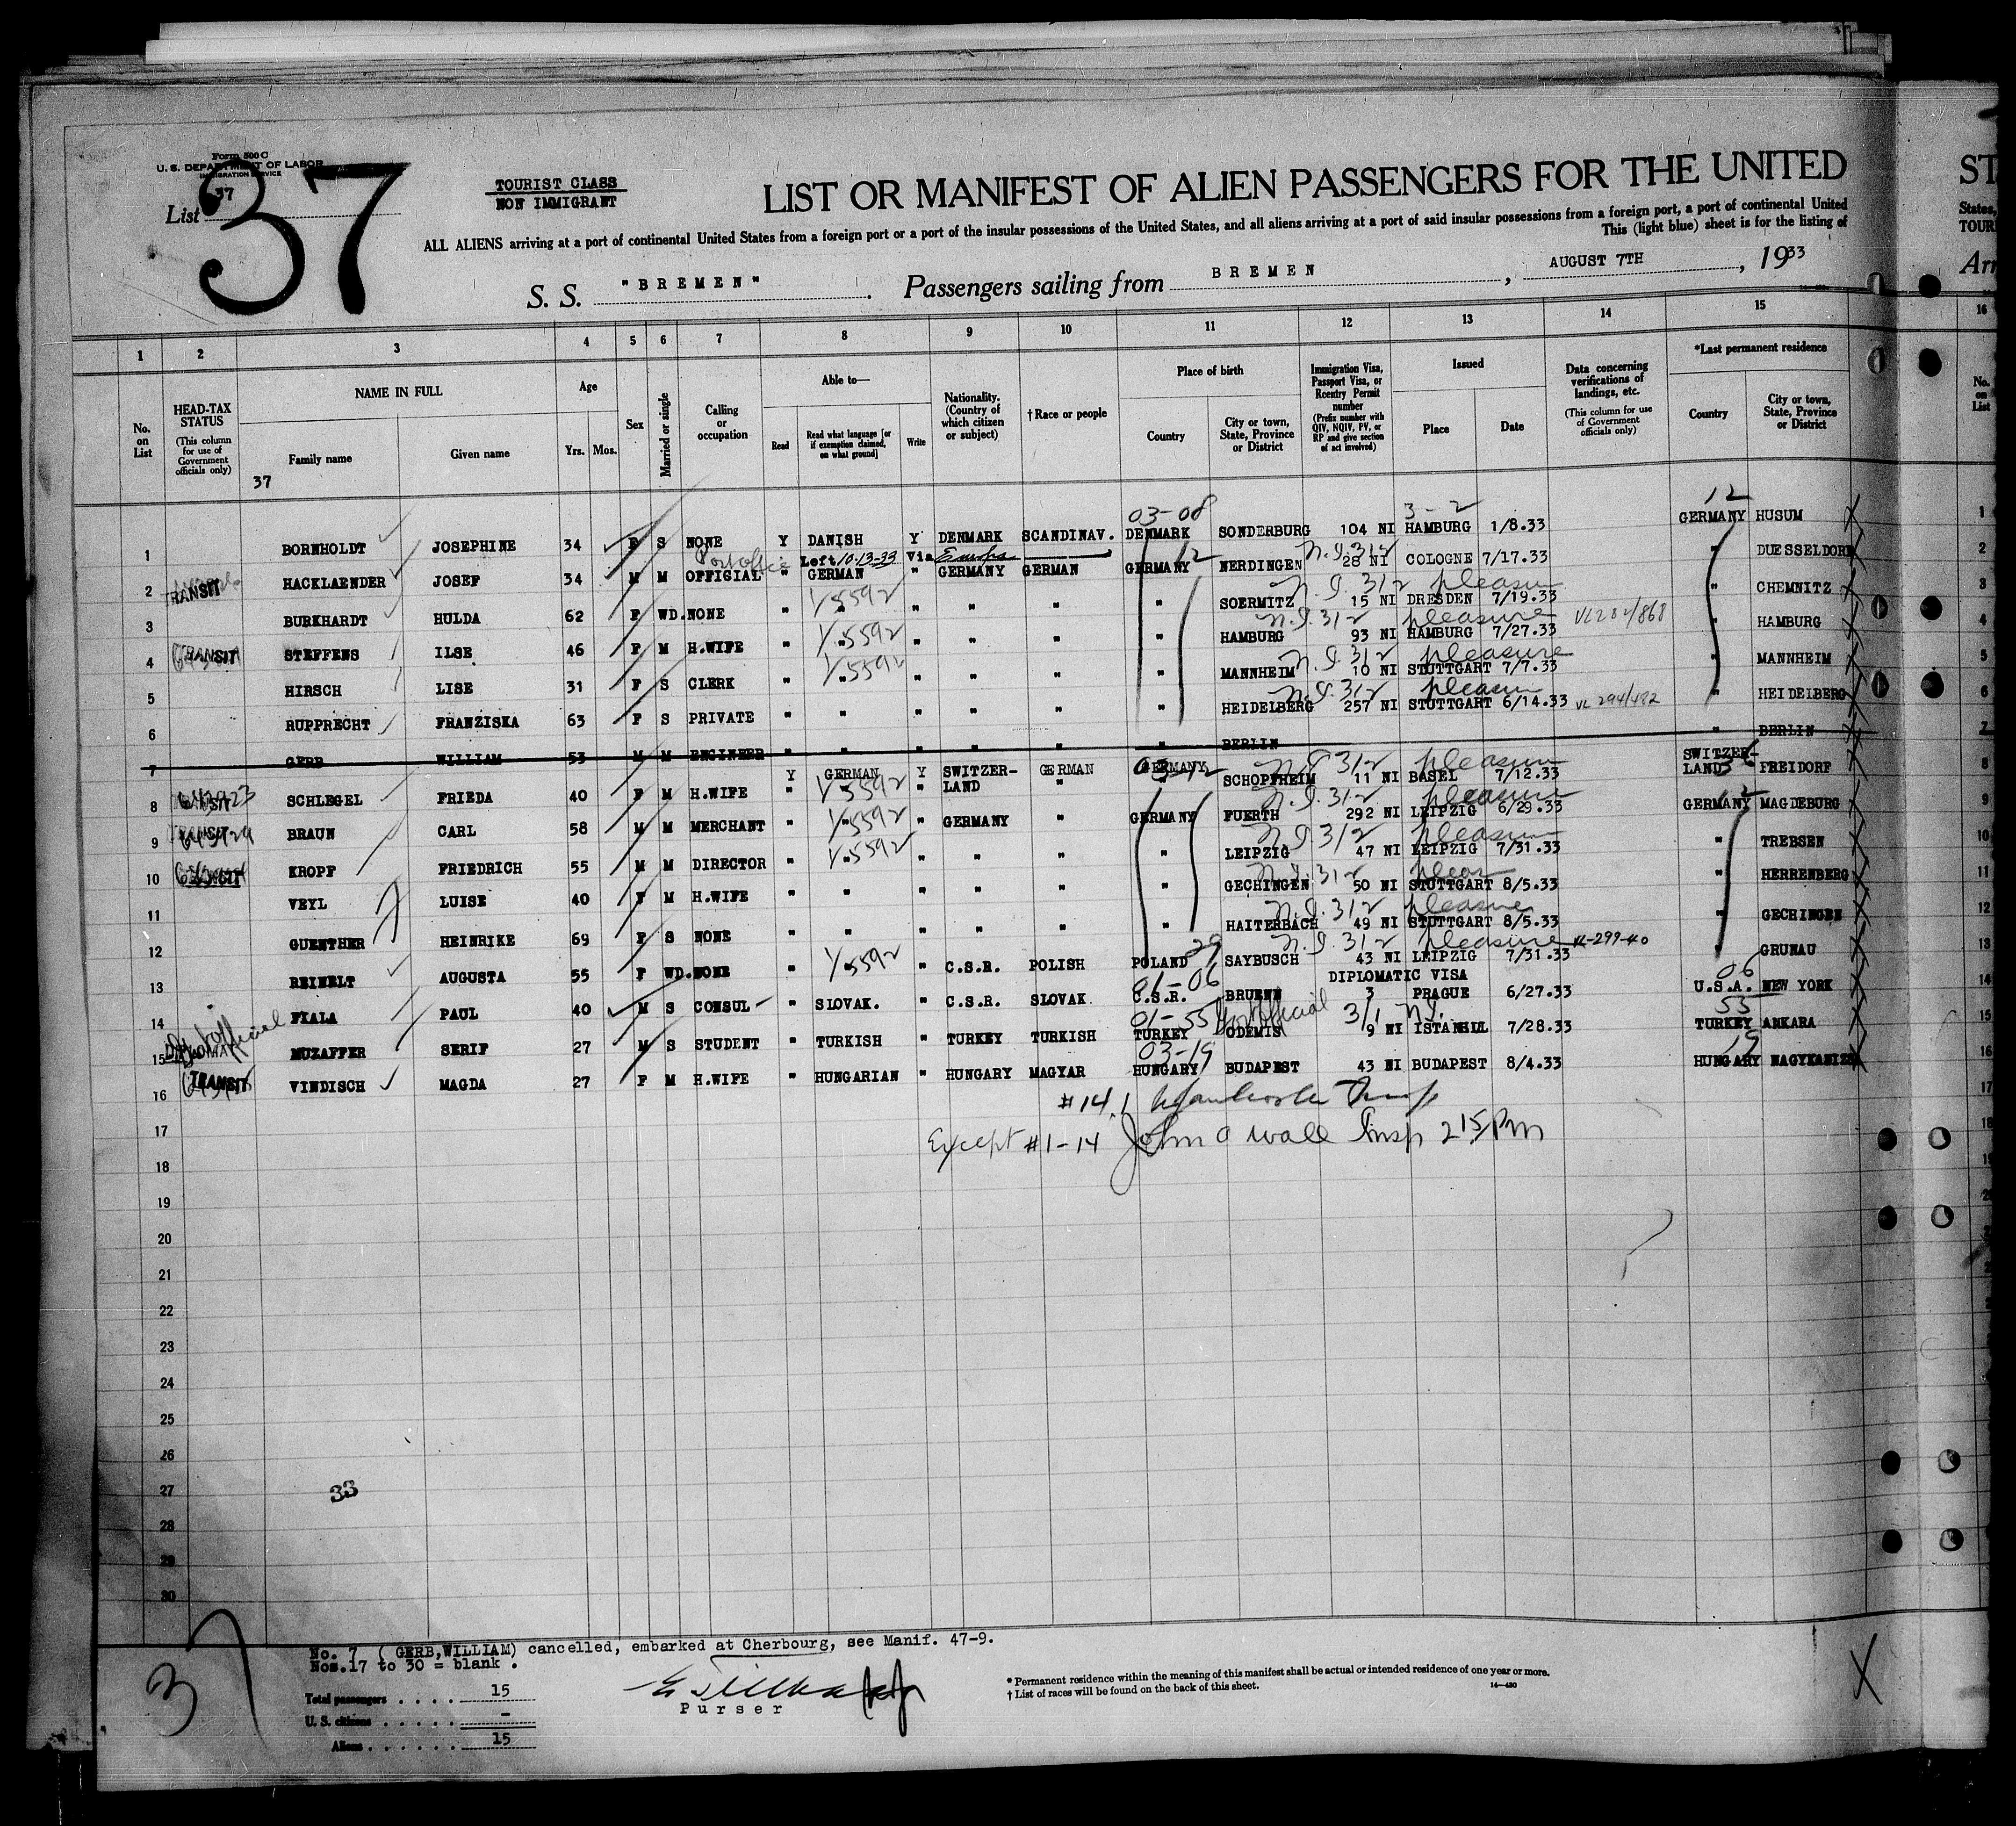 Form 500 C
U. S. DEPARTMENT OF LABOR
IMMIGRATION SERVICE
List 37
37
TOURIST CLASS
NON IMMIGRANT
LIST OR MANIFEST OF ALIEN PASSENGERS FOR THE UNITED
ALL ALIENS arriving at a port of continental United States from a foreign port or a port of the insular possessions of the United States, and all aliens arriving at a port of said insular possessions from a foreign port, a port of continental United
This (light blue) sheet is for the listing of
S. S. "BREMEN". Passengers sailing from BREMEN, AUGUST 7TH, 1933
ST
States,
TOUR
Arr
1 2 3 4 5 6 7 8 9 10 11 12 13 14 15 16
No. on List
HEAD-TAX STATUS (This column for use of Government officials only)
NAME IN FULL
Family name
Given name
Age
Yrs. Mos.
Sex
Married or single
Calling or occupation
Able to—
Read
Read what language [or if exemption claimed, on what ground]
Write
Nationality. (Country of which citizen or subject)
†Race or people
Place of birth
Country
City or town, State, Province or District
Immigration Visa, Passport Visa, or Reentry Permit number (Prefix number with QIV, NQIV, PV, or RP and give section of act involved)
Issued
Place
Date
Data concerning verifications of landings, etc. (This column for use of Government officials only)
*Last permanent residence
Country
City or town, State, Province or District
No. on List
37
03-08 3-2 12
1 BORNHOLDT JOSEPHINE 34 F S NONE Y DANISH Y DENMARK SCANDINAV. DENMARK SONDERBURG 104 NI HAMBURG 1/8.33 GERMANY HUSUM 1
Left 10-13-33 Via Europa 12 N.I. 312
2 TRANSIT HACKLAENDER JOSEF 34 M M OFFICIAL " GERMAN " GERMANY GERMAN GERMANY NERDINGEN 28 NI COLOGNE 7/17.33 " DUESSELDORF 2
V5592 N.I. 312 pleasure
3 BURKHARDT HULDA 62 F WD. NONE " " " " " " SOERMITZ 15 NI DRESDEN 7/19.33 " CHEMNITZ 3
V5592 N.I. 312 pleasure VL282/868
4 TRANSIT STEFFENS ILSE 46 F M H.WIFE " " " " " " HAMBURG 93 NI HAMBURG 7/27.33 " HAMBURG 4
V5592 N.I. 312 pleasure
5 HIRSCH LISE 31 F S CLERK " " " " " " MANNHEIM 10 NI STUTTGART 7/7.33 " MANNHEIM 5
N.I. 312 pleasure
6 RUPPRECHT FRANZISKA 63 F S PRIVATE " " " " " " HEIDELBERG 257 NI STUTTGART 6/14.33 VL 294/482 " HEIDELBERG 6
7 GERB WILLIAM 53 M M ENGINEER " " " " " " BERLIN " BERLIN 7
N.I. 312 pleasure
8 SCHLEGEL FRIEDA 40 F M H.WIFE Y GERMAN Y SWITZERLAND GERMAN GERMANY SCHOPFHEIM 11 NI BASEL 7/12.33 SWITZERLAND FREIDORF 8
V5592 N.I. 312 pleasure 12
9 BRAUN CARL 58 M M MERCHANT " " " GERMANY " GERMANY FUERTH 292 NI LEIPZIG 6/29.33 GERMANY MAGDEBURG 9
V5592 N.I. 312 pleasure
10 KROPF FRIEDRICH 55 M M DIRECTOR " " " " " " LEIPZIG 47 NI LEIPZIG 7/31.33 " TREBSEN 10
V5592 N.I. 312 pleas
11 VEYL LUISE 40 F M H.WIFE " " " " " " GECHINGEN 50 NI STUTTGART 8/5.33 " HERRENBERG 11
N.I. 312 pleasure
12 GUENTHER HEINRIKE 69 F S NONE " " " " " " HAITERBACH 49 NI STUTTGART 8/5.33 " GECHINGEN 12
29 N.I. 312 pleasure VL-299-40
13 REINELT AUGUSTA 55 F WD. NONE " V5592 " C.S.R. POLISH POLAND SAYBUSCH 43 NI LEIPZIG 7/31.33 " GRUNAU 13
01-06 DIPLOMATIC VISA 06
14 FIALA PAUL 40 M S CONSUL " SLOVAK. " C.S.R. SLOVAK C.S.R. BRUENN 3 PRAGUE 6/27.33 U.S.A. NEW YORK 14
01-55 3/1 N.I. 55
15 MUZAFFER SERIF 27 M S STUDENT " TURKISH " TURKEY TURKISH TURKEY ODEMIS 9 NI ISTANBUL 7/28.33 TURKEY ANKARA 15
03-19 19
16 TRANSIT VINDISCH MAGDA 27 F M H.WIFE " HUNGARIAN " HUNGARY MAGYAR HUNGARY BUDAPEST 43 NI BUDAPEST 8/4.33 HUNGARY NAGYKANIZSA 16
#14.1
17 17
Except #1-14 John a Wall Insp 2 15 PM
18 18
19
20
21
22
23
24
25
26
27
33
28
29
30
37
No. 7 (GERB,WILLIAM) cancelled, embarked at Cherbourg, see Manif. 47-9.
Nos.17 to 30 = blank .
Total passengers . . . . 15
U. S. citizens . . . . . -
Aliens . . . . . . 15
Purser
* Permanent residence within the meaning of this manifest shall be actual or intended residence of one year or more.
† List of races will be found on the back of this sheet.
14—430